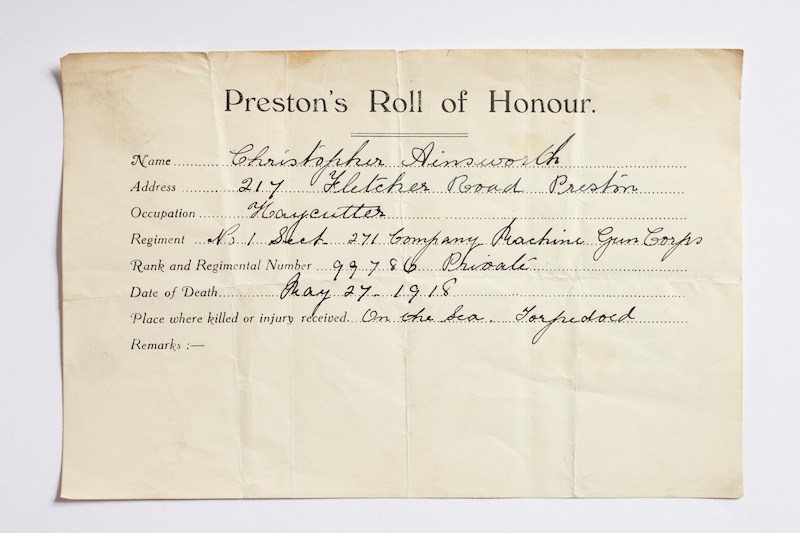 Preston's Roll of Honour.
Name Christopher Ainsworth
Address 217 Fletcher Road Preston
Occupation Haycutter
Regiment No 1 Sect 271 Company Machine Gun Corps
Rank and Regimental Number 99786 Private
Date of Death May 27. 1918
Place where killed or injury received On the Sea. Torpedoed
Remarks :—